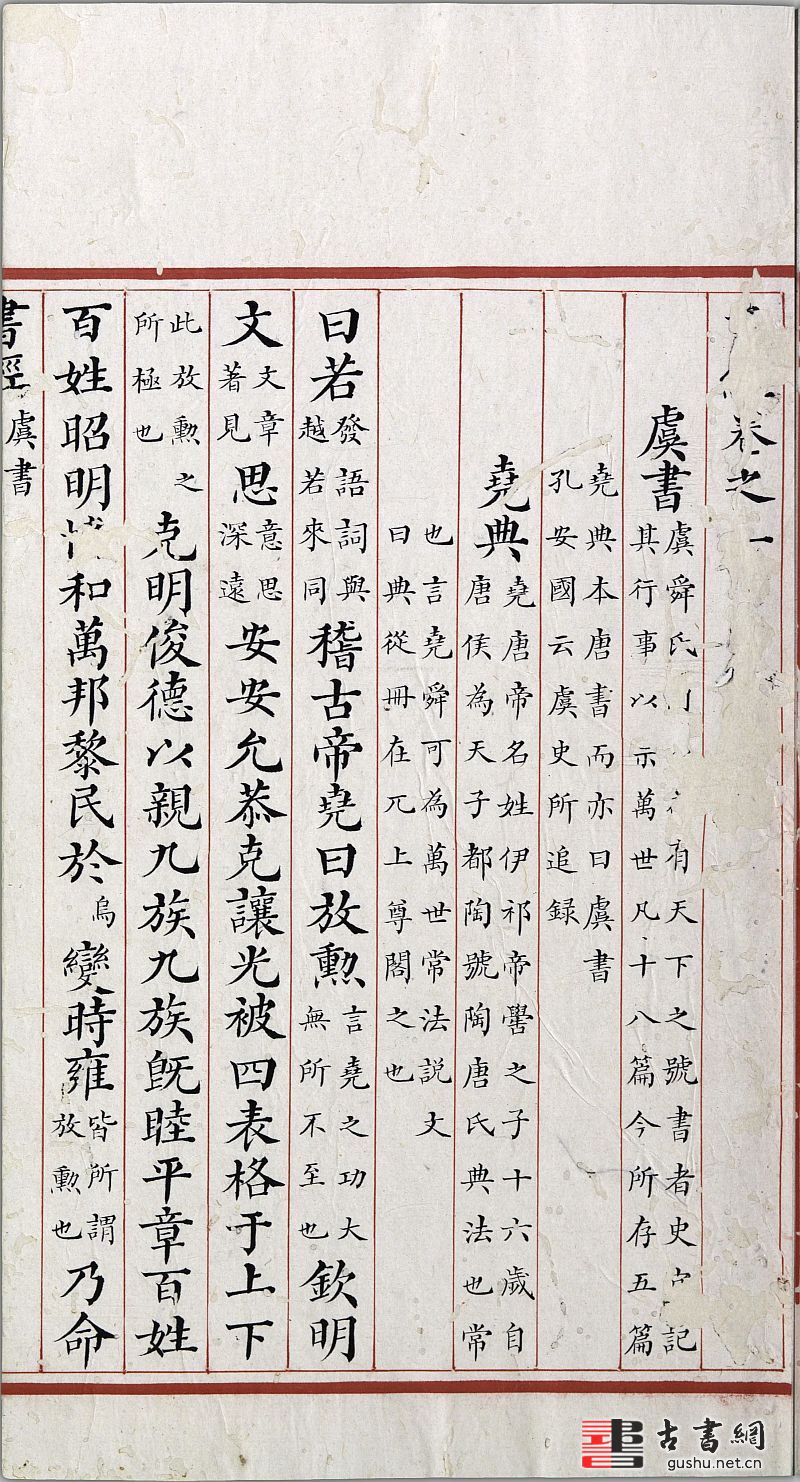 卷之一
虞書虞舜氏有天下之號書者史記其行事以示萬世凡十八篇今所存五篇
堯典本唐書而亦曰虞書孔安國云虞史所追録
堯典堯唐帝名姓伊祁帝嚳之子十六歲自唐侯為天子都陶號陶唐氏典法也常
也言堯舜可為萬世常法説文曰典從冊在兀上尊閣之也
曰若發語詞與越若來同稽古帝堯曰放勲言堯之功大無所不至也欽明
文文章著見思意思深遠安安允恭克讓光被四表格于上下
此放勲之所極也克明俊德以親九族九族既睦平章百姓
百姓昭明和萬邦黎民於烏變時雍皆所謂放勲也乃命
書經虞書
古書網
gushu.net.cn